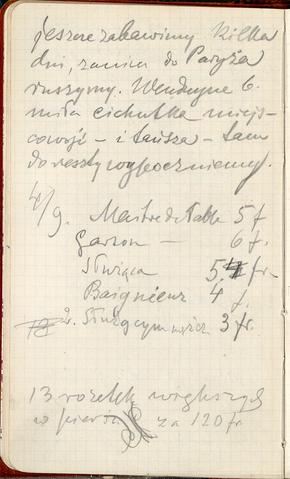 jeszcze zabawimy kilka
dni, zanim do Paryża
ruszymy. Wenduyne b.
miła cichutka miejs-
cowość – i tańsza – tam
do reszty wypoczniemy.
4/9. Maitre de table 5 f
Garson — 6 fr.
Służąca 5. fr.
Baigneur 4 f.
Służącym 3 fr.
13 rozetek większych
w za 120 fr